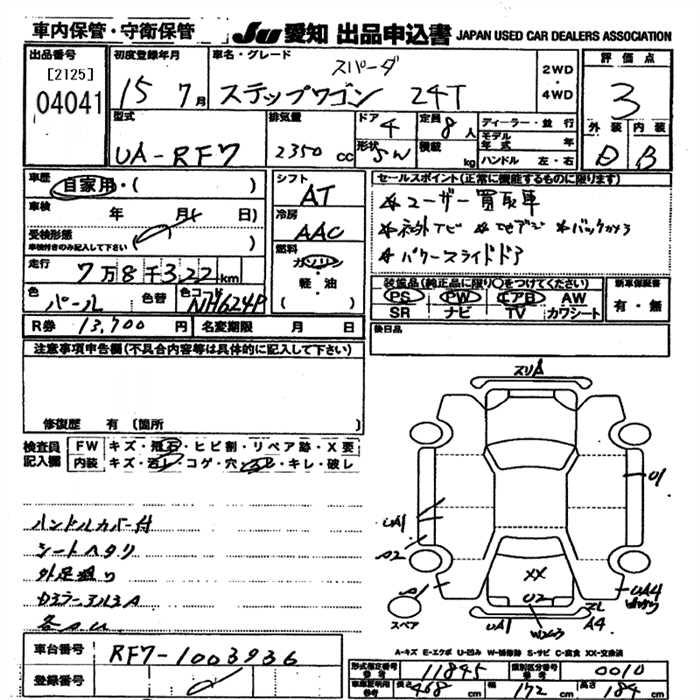 車内保管・守衛保管
JU 愛知 出品申込書 JAPAN USED CAR DEALERS ASSOCIATION
出品番号
[2125]
04041
初度登録年月
15 7月
車名・グレード
スパーダ
ステップワゴン 24T
2WD
・
4WD
評価点
3
外装 内装
D B
型式
UA-RF7
排気量
2350 cc
ドア 4
形状 SW
定員 8人
積載 kg
ディーラー・並行
モデル年式 年
ハンドル 左・右
車歴
自家用・( )
車検
年 月 日
受検形態
車検付きのみ記入して下さい ( )
走行
7万8千322km
色
パール
色替
色コード
NH624P
シフト
AT
冷房
AAC
燃料
ガソリン
・
軽・油
( )
セールスポイント(正常に機能するものに限ります)
*ユーザー買取車
*社外ナビ *地デジ *バックカメラ
*パワースライドドア
装備品(純正品に限り○をつけてください)
PS PW エアB AW
SR ナビ TV カワシート
新車保証書
有・無
R券 13,700円 名変期限 月 日
後日品
注意事項申告欄(不具合内容等は具体的に記入して下さい)
修復歴 有 (箇所 )
検査員記入欄
FW キズ・飛石・ヒビ割・リペア跡・X要
内装 キズ・汚レ・コゲ・穴・スレ・キレ・破レ
ハンドルカバー付
シートヘタリ
外足廻り
スリA
U1
UA1
A2
A1
XX
U2
UA4
A4
UA1
W2×3
スペア
A-キズ E-エクボ U-凹み W-補修跡 S-サビ C-腐食 XX-交換済
車台番号
RF7-1003936
登録番号
型式指定番号 11845
類別区分番号 0010
車庫証明用参考
長さ 468 cm
幅 172 cm
高さ 184 cm